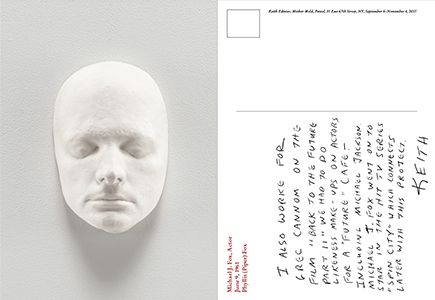 Keith Edmier, Mother Mold, Petzel, 35 East 67th Street, NY, September 6–November 4, 2017
Michael J. Fox, Actor
June 9, 1961
Phyllis (Piper) Fox
I ALSO WORKE FOR
GREG CANNOM ON THE
FILM "BACK TO THE FUTURE
PART II" WE HAD TO DO
LIKENESS MAKE-UPS ON ACTORS
FOR A "FUTURE" CAFE –
INCLUDING MICHAEL JACKSON.
MICHAEL J. FOX WENT ON TO
STAR IN THE HIT TV SERIES
"SPIN CITY" WHICH CONNECTS
LATER WITH THIS PROJECT.
KEITH